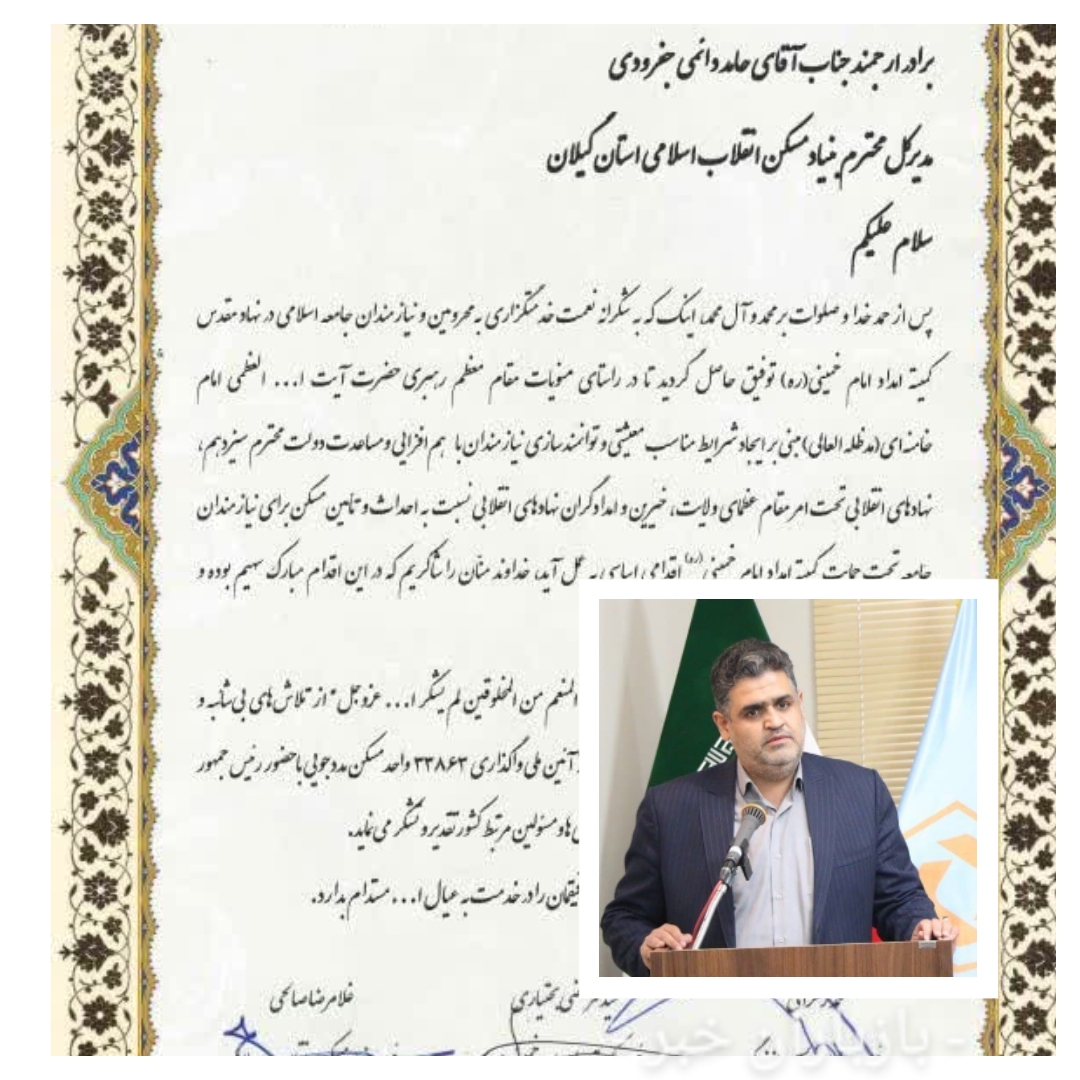 برادر ارجمند جناب آقای حامد دائمی جفرودی
مدیرکل محترم بنیاد مسکن انقلاب اسلامی استان گیلان
سلام علیکم
پس از حمد خدا و صلوات بر محمد و آل محمد، اینک که به شکرانه نعمت خدمتگزاری به محرومین و نیازمندان جامعه اسلامی در نهاد مقدس
کمیته امداد امام خمینی(ره) توفیق حاصل گردید تا در راستای منویات مقام معظم رهبری حضرت آیت ا... العظمی امام
خامنه ای(مدظله العالی) مبنی بر ایجاد شرایط مناسب معیشتی و توانمندسازی نیازمندان با هم افزایی و مساعدت دولت محترم سیزدهم،
نهادهای انقلابی تحت امر مقام عظمای ولایت، خیرین و امدادگران نهادهای انقلابی نسبت به احداث و تأمین مسکن برای نیازمندان
جامعه تحت حمایت کمیته امداد امام خمینی(ره) اقدامی اساسی به عمل آید، خداوند منّان را شاکریم که در این اقدام مبارک سهیم بوده و
المنعم من المخلوقین لم یشکر ا... عزوجل" از تلاش های بی شائبه و
آئین ملی واگذاری ۳۳۸۶۳ واحد مسکن مددجویی با حضور رئیس جمهور
ها و مسئولین مرتبط کشور تقدیر و تشکر می نماید.
را در خدمت به عیال ا... مستدام بدارد.
بختیاری غلامرضا صالحی
- بازیاران خبر -